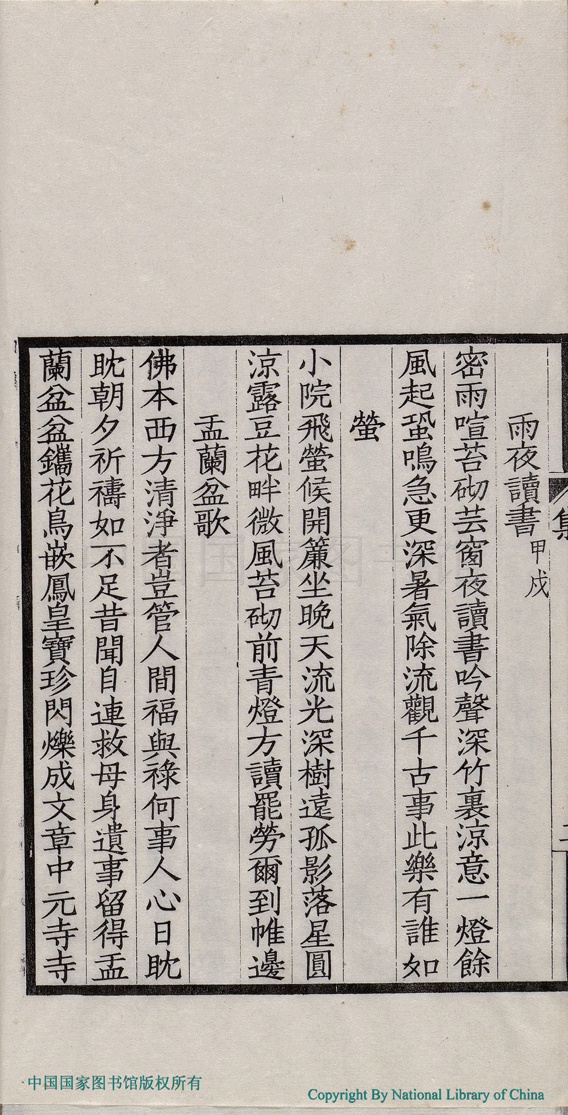 雨夜讀書 甲戌
密雨喧苔砌芸窗夜讀書吟聲深竹裏涼意一燈餘
風起蛩鳴急更深暑氣除流觀千古事此樂有誰如
螢
小院飛螢候開簾坐晚天流光深樹遠孤影落星圓
涼露豆花畔微風苔砌前青燈方讀罷勞爾到帷邊
盂蘭盆歌
佛本西方清淨者豈管人間福與祿何事人心日眈
眈朝夕祈禱如不足昔聞自連救母身遺事留得盂
蘭盆盆鑴花鳥嵌鳳皇寶珍閃爍成文章中元寺寺
中国国家图书馆版权所有
Copyright By National Library of China